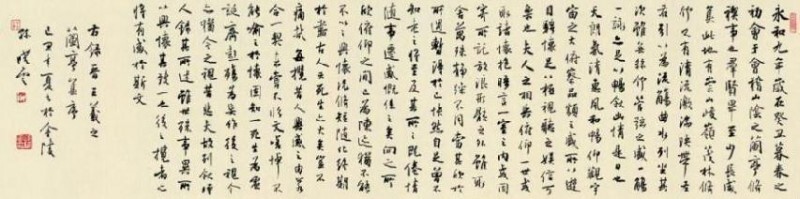 永和九年歲在癸丑暮春之
初會于會稽山陰之蘭亭修
禊事也羣賢畢至少長咸
集此地有崇山峻嶺茂林修
竹又有清流激湍映帶左
右引以為流觴曲水列坐其
次雖無絲竹管弦之盛一觴
一詠亦足以暢敘幽情是日也
天朗氣清惠風和暢仰觀宇
宙之大俯察品類之盛所以遊
目騁懷足以極視聽之娛信可
樂也夫人之相與俯仰一世或
取諸懷抱晤言一室之內或因
寄所託放浪形骸之外雖趣
舍萬殊靜躁不同當其欣於
所遇暫得於己快然自足曾不
知老之將至及其所之既倦情
隨事遷感慨係之矣向之所
欣俯仰之間已為陳迹猶不能
不以之興懷況修短隨化終期
於盡古人云死生亦大矣豈不
痛哉每攬昔人興感之由若
合一契未嘗不臨文嗟悼不
能喻之於懷固知一死生為虛
誕齊彭殤為妄作後之視今
亦猶今之視昔悲夫故列敘時
人錄其所述雖世殊事異所
以興懷其致一也後之攬者亦
將有感於斯文
右錄晉王羲之
蘭亭集序
己丑年夏日於金陵
孫曉雲